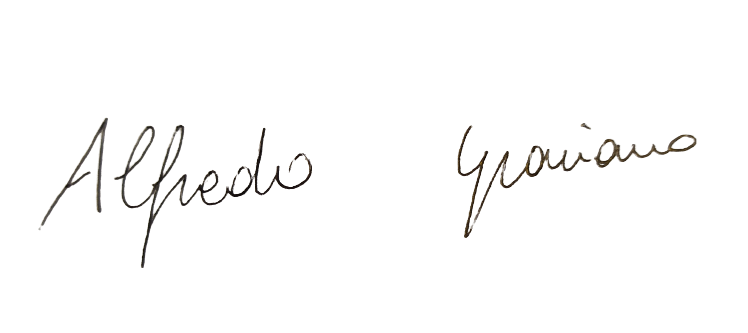 Alfredo Graviano